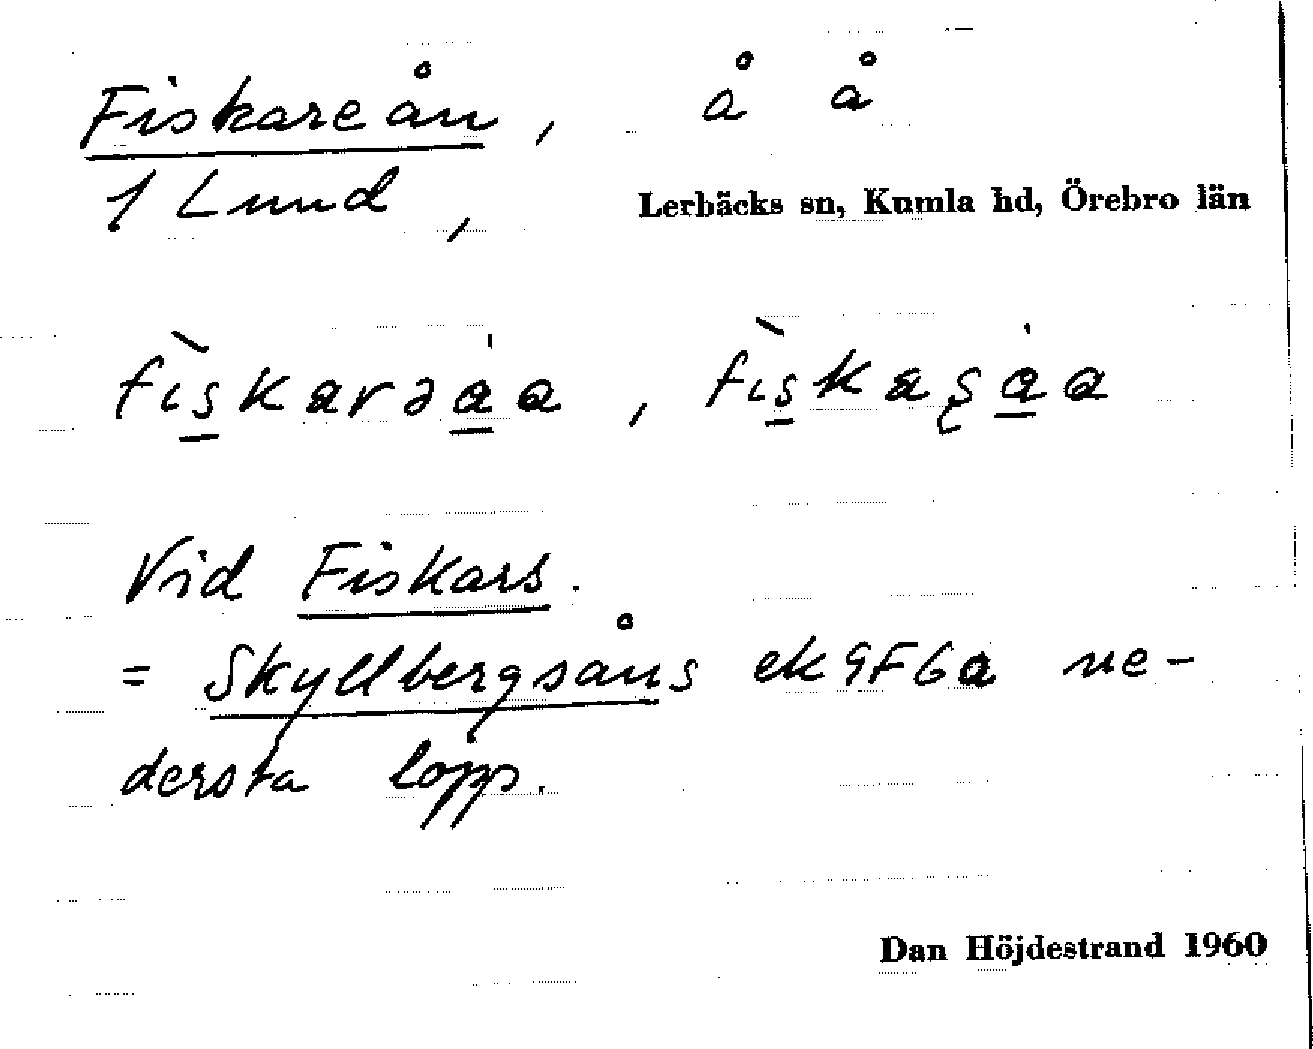 Fiskareån, å å
1 Lund,
Lerbäcks sn, Kumla hd, Örebro län
fɩ̀s̲karəa̲̍a, fɩ̀s̲kaʂa̲̍a
Vid Fiskars.
= Skyllbergsåns ek 9F6a ne-
dersta lopp.
Dan Höjdestrand 1960